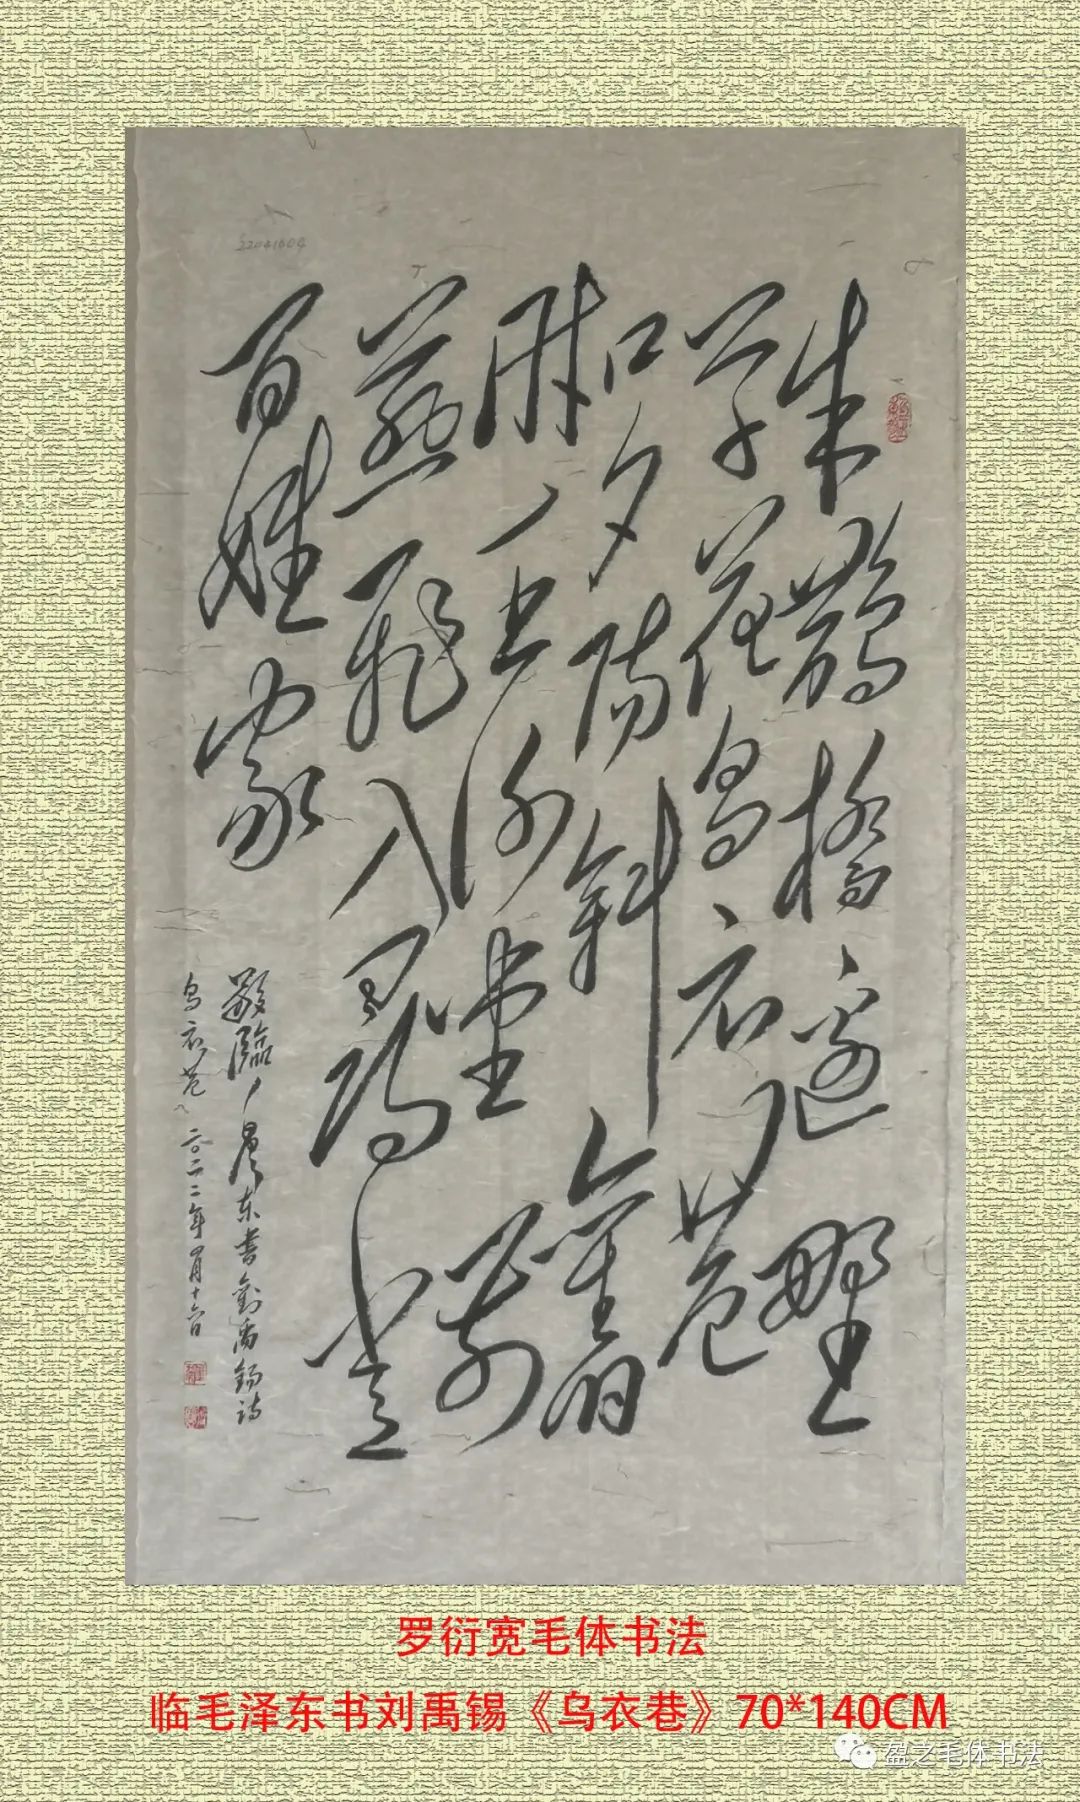 22041604
朱鵲橋邊野
草花烏衣巷
口夕陽斜舊
時王謝堂前
燕飛入尋常
百姓家
敬臨毛澤东書劉禹錫诗
烏衣巷 二〇二二年四月十六日
罗衍宽毛体书法
临毛泽东书刘禹锡《乌衣巷》70*140CM
盈之毛体书法